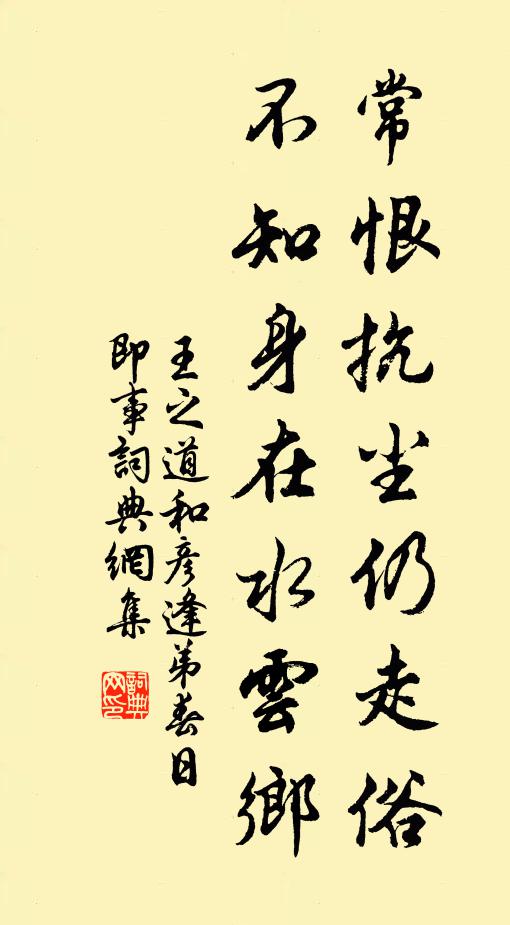 常恨抗尘仍走俗
不知身在水雲鄉
王之道和彦逢弟春日
即事詞典網集
詞典網印